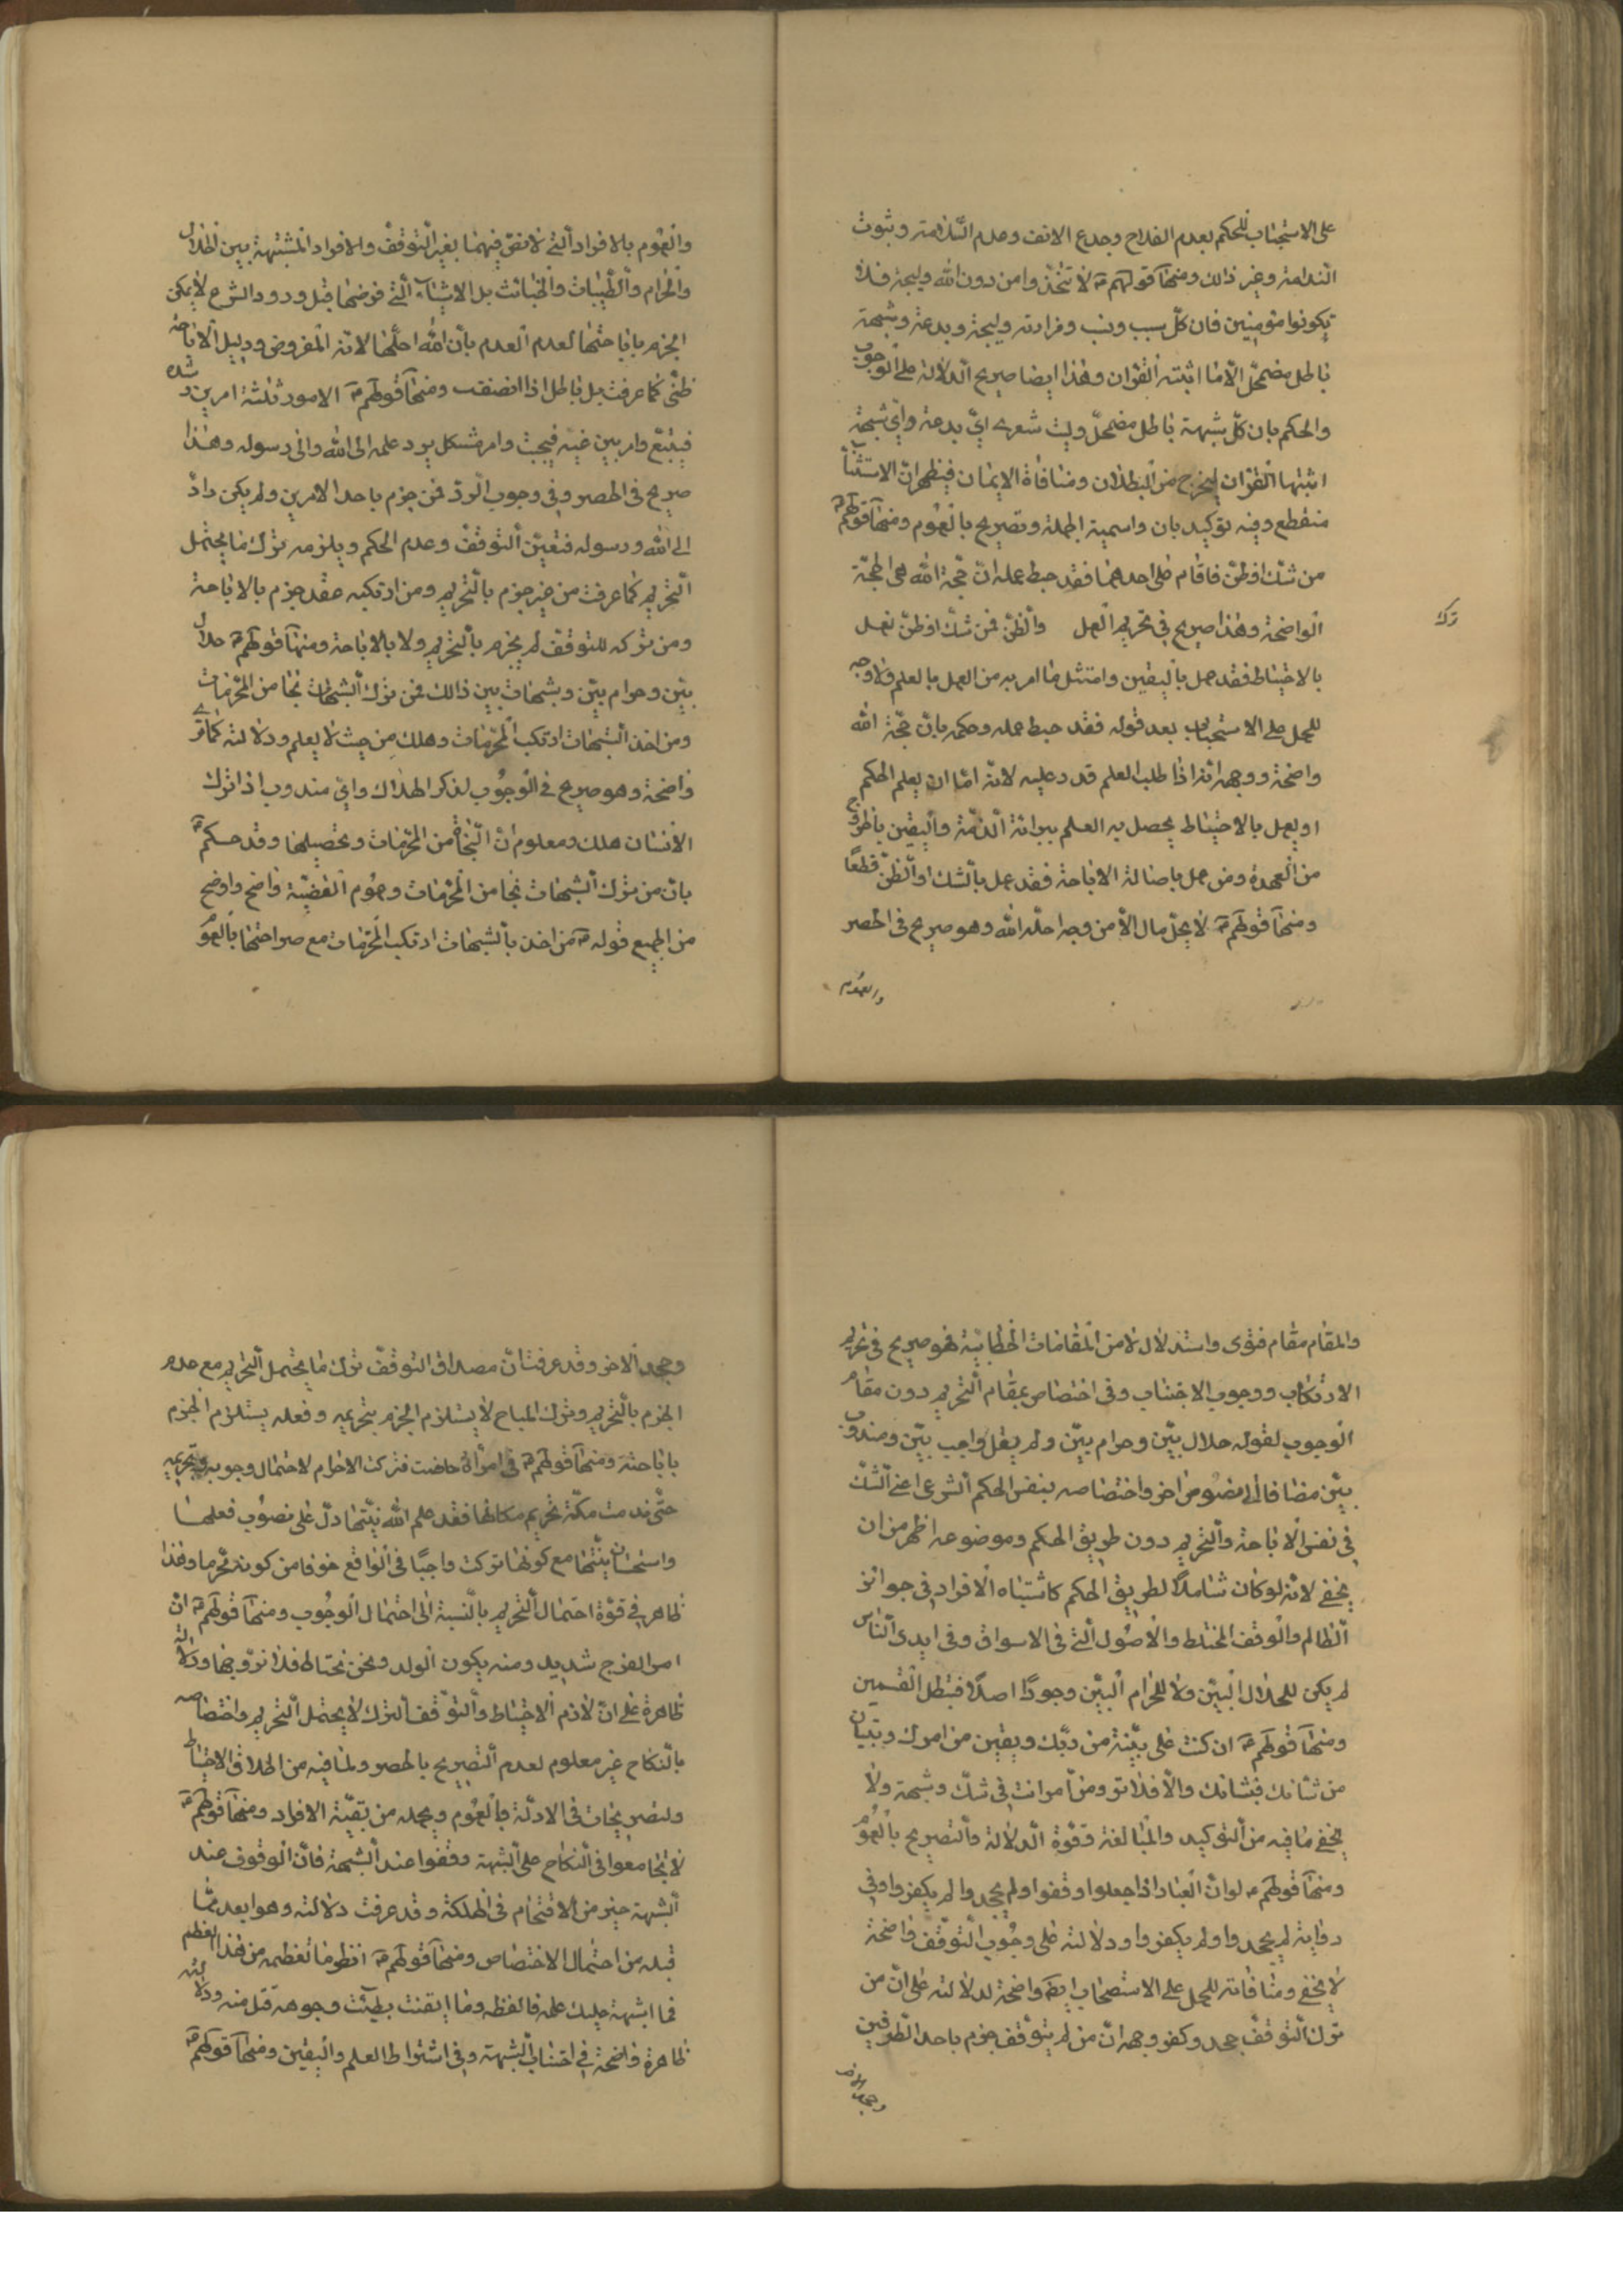 على الاستحباب للحكم بعدم الفلاح وجدع الانف وعدم السلامة وثبوت
الندامة وغير ذلك ومنها قولهم ع لا تتخذوا من دون الله وليجة فلا
تكونوا مؤمنين فان كل سبب ونسب وقرابة وليجة وبدعة وشبهة
باطل مضمحل الا ما اثبته القران وهذا ايضا صريح الدلالة على الوجوب
والحكم بان كل شبهة باطل مضمحل وليت شعري اي بدعة واي شبهة
اثبتها القران ليخرج من البطلان ومنافاة الايمان فيظهر ان الاستثناء
منقطع وفيه توكيد بان واسمية الجملة وتصريح بالعموم ومنها قولهم ع
من شك او ظن فاقام على احدهما فقد حبط عمله ان حجة الله هي الحجة
الواضحة وهذا صريح في تحريم العمل والظن فمن شك او ظن فعمل
ترك
بالاحتياط فقد عمل باليقين وامتثل ما امر به من العمل بالعلم ولا وجه
للحمل على الاستحباب بعد قوله فقد حبط عمله وحكمه بان حجة الله
واضحة ووجهه انه اذا طلب العلم قدر عليه لانه اما ان يعلم الحكم
او يعمل بالاحتياط يحصل به العلم ببرائة الذمة واليقين بالخروج
من العهدة ومن عمل باصالة الاباحة فقد عمل بالشك او الظن قطعا
ومنها قولهم ع لا يحل مال الا من وجه احله الله وهو صريح في الحصر
والعموم
والعموم بالافراد التي لا نص فيهما بغير التوقف والافراد المشتبهة بين الحلال
والحرام والطيبات والخبائث بل الاشياء التي فرضها قبل ورود الشرع لا يمكن
الجزم باباحتها لعدم العلم بان الله احلها لانه المفروض ودليل الاباحة
ظني كما عرفت بل باطل اذا انصفت ومنها قولهم ع الامور ثلثة امر بين رشده
فيتبع وامر بين غيه فيجتنب وامر مشكل يرد علمه الى الله والى رسوله وهذا
صريح في الحصر وفي وجوب الرد فمن جزم باحد الامرين ولم يكن رادّ
الى الله ورسوله فتعين التوقف وعدم الحكم ويلزمه ترك ما يحتمل
التحريم كما عرفت من غير جزم بالتحريم ومن ارتكبه فقد جزم بالاباحة
ومن تركه للتوقف لم يجزم بالتحريم ولا بالاباحة ومنها قولهم ع حلال
بين وحرام بين وشبهات بين ذلك فمن ترك الشبهات نجا من المحرمات
ومن اخذ الشبهات ارتكب المحرمات وهلك من حيث لا يعلم ودلالته كما ترى
واضحة وهو صريح في الوجوب لذكر الهلاك واي مندوب اذا ترك
الانسان هلك ومعلوم ان النجاة من المحرمات وتحصيلها وقد حكم ع
بان من ترك الشبهات نجا من المحرمات وعموم القضية واضح واوضح
من الجميع قوله ع من اخذ بالشبهات ارتكب المحرمات مع صراحتها بالعموم
والمقام مقام فتوى واستدلال لا من المقامات الخطابية فهو صريح في تحريم
الارتكاب ووجوب الاجتناب وفي اختصاص بمقام التحريم دون مقام
الوجوب لقوله حلال بين وحرام بين ولم يقل واجب بين ومندوب
بين مضافا الى نصوص اخر واختصاصه بنفس الحكم الشرعي اعني الشك
في نفس الاباحة والتحريم دون طريق الحكم وموضوعه اظهر من ان
يخفى لانه لو كان شاملا لطريق الحكم كاشتباه الافراد في جوائز
الظالم والوقف المختلط والاصول التي في الاسواق وفي ايدي الناس
لم يكن للحلال البين ولا للحرام البين وجودا اصلا فيبطل القسمين
ومنها قولهم ع ان كنت على بينة من ربك ويقين من امرك وتبيان
من شانك فشانك والا فلا تر ومن امرا انت في شك وشبهة ولا
يخفى ما فيه من التوكيد والمبالغة وقوة الدلالة والتصريح بالعموم
ومنها قولهم ع لو ان العباد اذا جهلوا وقفوا ولم يجحدوا لم يكفروا وفي
رواية لم يجحدوا ولم يكفروا ودلالته على وجوب التوقف واضحة
لا يخفى ومنافاته للحمل على الاستحباب ايضا واضحة لدلالته على ان من
ترك التوقف جحد وكفر وجهه ان من لم يتوقف جزم باحد الطرفين
وجحد الاخر
وجحد الاخر وقد عرفت ان مصداق التوقف ترك ما يحتمل التحريم مع عدم
الجزم بالتحريم وترك المباح لا يستلزم الجزم بتحريمه وفعله يستلزم الجزم
باباحته ومنها قولهم ع في امرأة حاضت فتركت الاحرام لاحتمال وجوبه وتحريمه
حتى قدمت مكة تحريم مكانها فقد علم الله نيتها دل على تصويب فعلها
واستحسان نيتها مع كونها تركت واجبا في الواقع خوفا من كونه محرما وهذا
ظاهر في قوة احتمال التحريم بالنسبة الى احتمال الوجوب ومنها قولهم ع ان
امر الفرج شديد ومنه يكون الولد ونحن نحتاط فلا تزوجها ودلالته
ظاهرة على ان لازم الاحتياط والتوقف الترك لا يحتمل التحريم واختصاصه
بالنكاح غير معلوم لعدم التصريح بالحصر ولمافيه من اطلاق الاحتياط
ولتصريحات في الادلة بالعموم وبجملة من بقية الافراد ومنها قولهم ع
لا تجامعوا في النكاح على الشبهة وقفوا عند الشبهة فان الوقوف عند
الشبهة خير من الاقتحام في الهلكة وقد عرفت دلالته وهو ابعد مما
قبله من احتمال الاختصاص ومنها قولهم ع انظر ما تقضمه من هذا المقضم
فما اشتبه عليك علمه فالفظه وما ايقنت بطيب وجوهه فنل منه ودلالته
ظاهرة واضحة في اجتناب الشبهة وفي اشتراط العلم واليقين ومنها قولهم ع